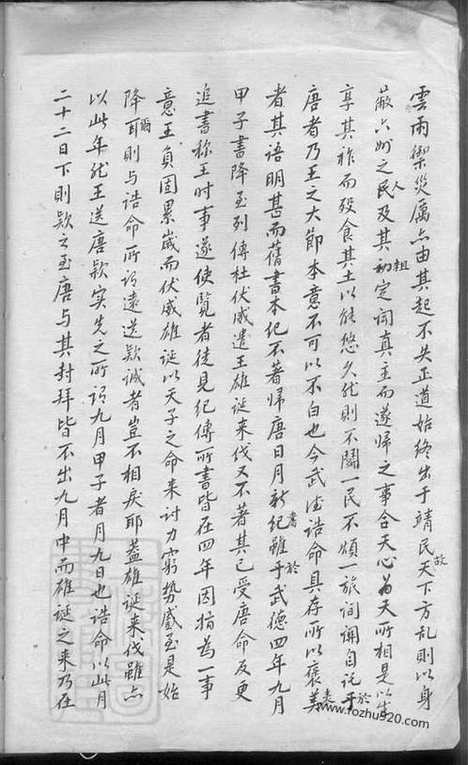 雲雨禦災厲亦由其起不失正道始終出于靖民天下方亂則以身
故
蔽六州之民及其初定聞真主而遂歸之事合天心為天所相是以生
人
祖
享其祚而歿食其土以能悠久然則不鬪一民不頓一旅間關自託于
於
唐者乃王之大節本意不可以不白也今武德誥命具存所以褒美
表
者其語明甚而舊書本紀不著歸唐日月新紀雖于武德四年九月
書
於
甲子書降至列傳杜伏威遣王雄誕來伐又不著其已受唐命反更
追書稱王時事遂使覽者徒見紀傳所書皆在四年因指為一事
意王負固累歲而伏威雄誕以天子之命來討力窮勢蹙至是始
降耳則与誥命所謂遠送款誠者豈不相戾耶蓋雄誕來伐雖亦
爾
以此年然王送唐款實先之所謂九月甲子者月九日也誥命以此月
二十二日下則款之至唐与其封拜皆不出九月中而雄誕之來乃在
www.fozhu920.com